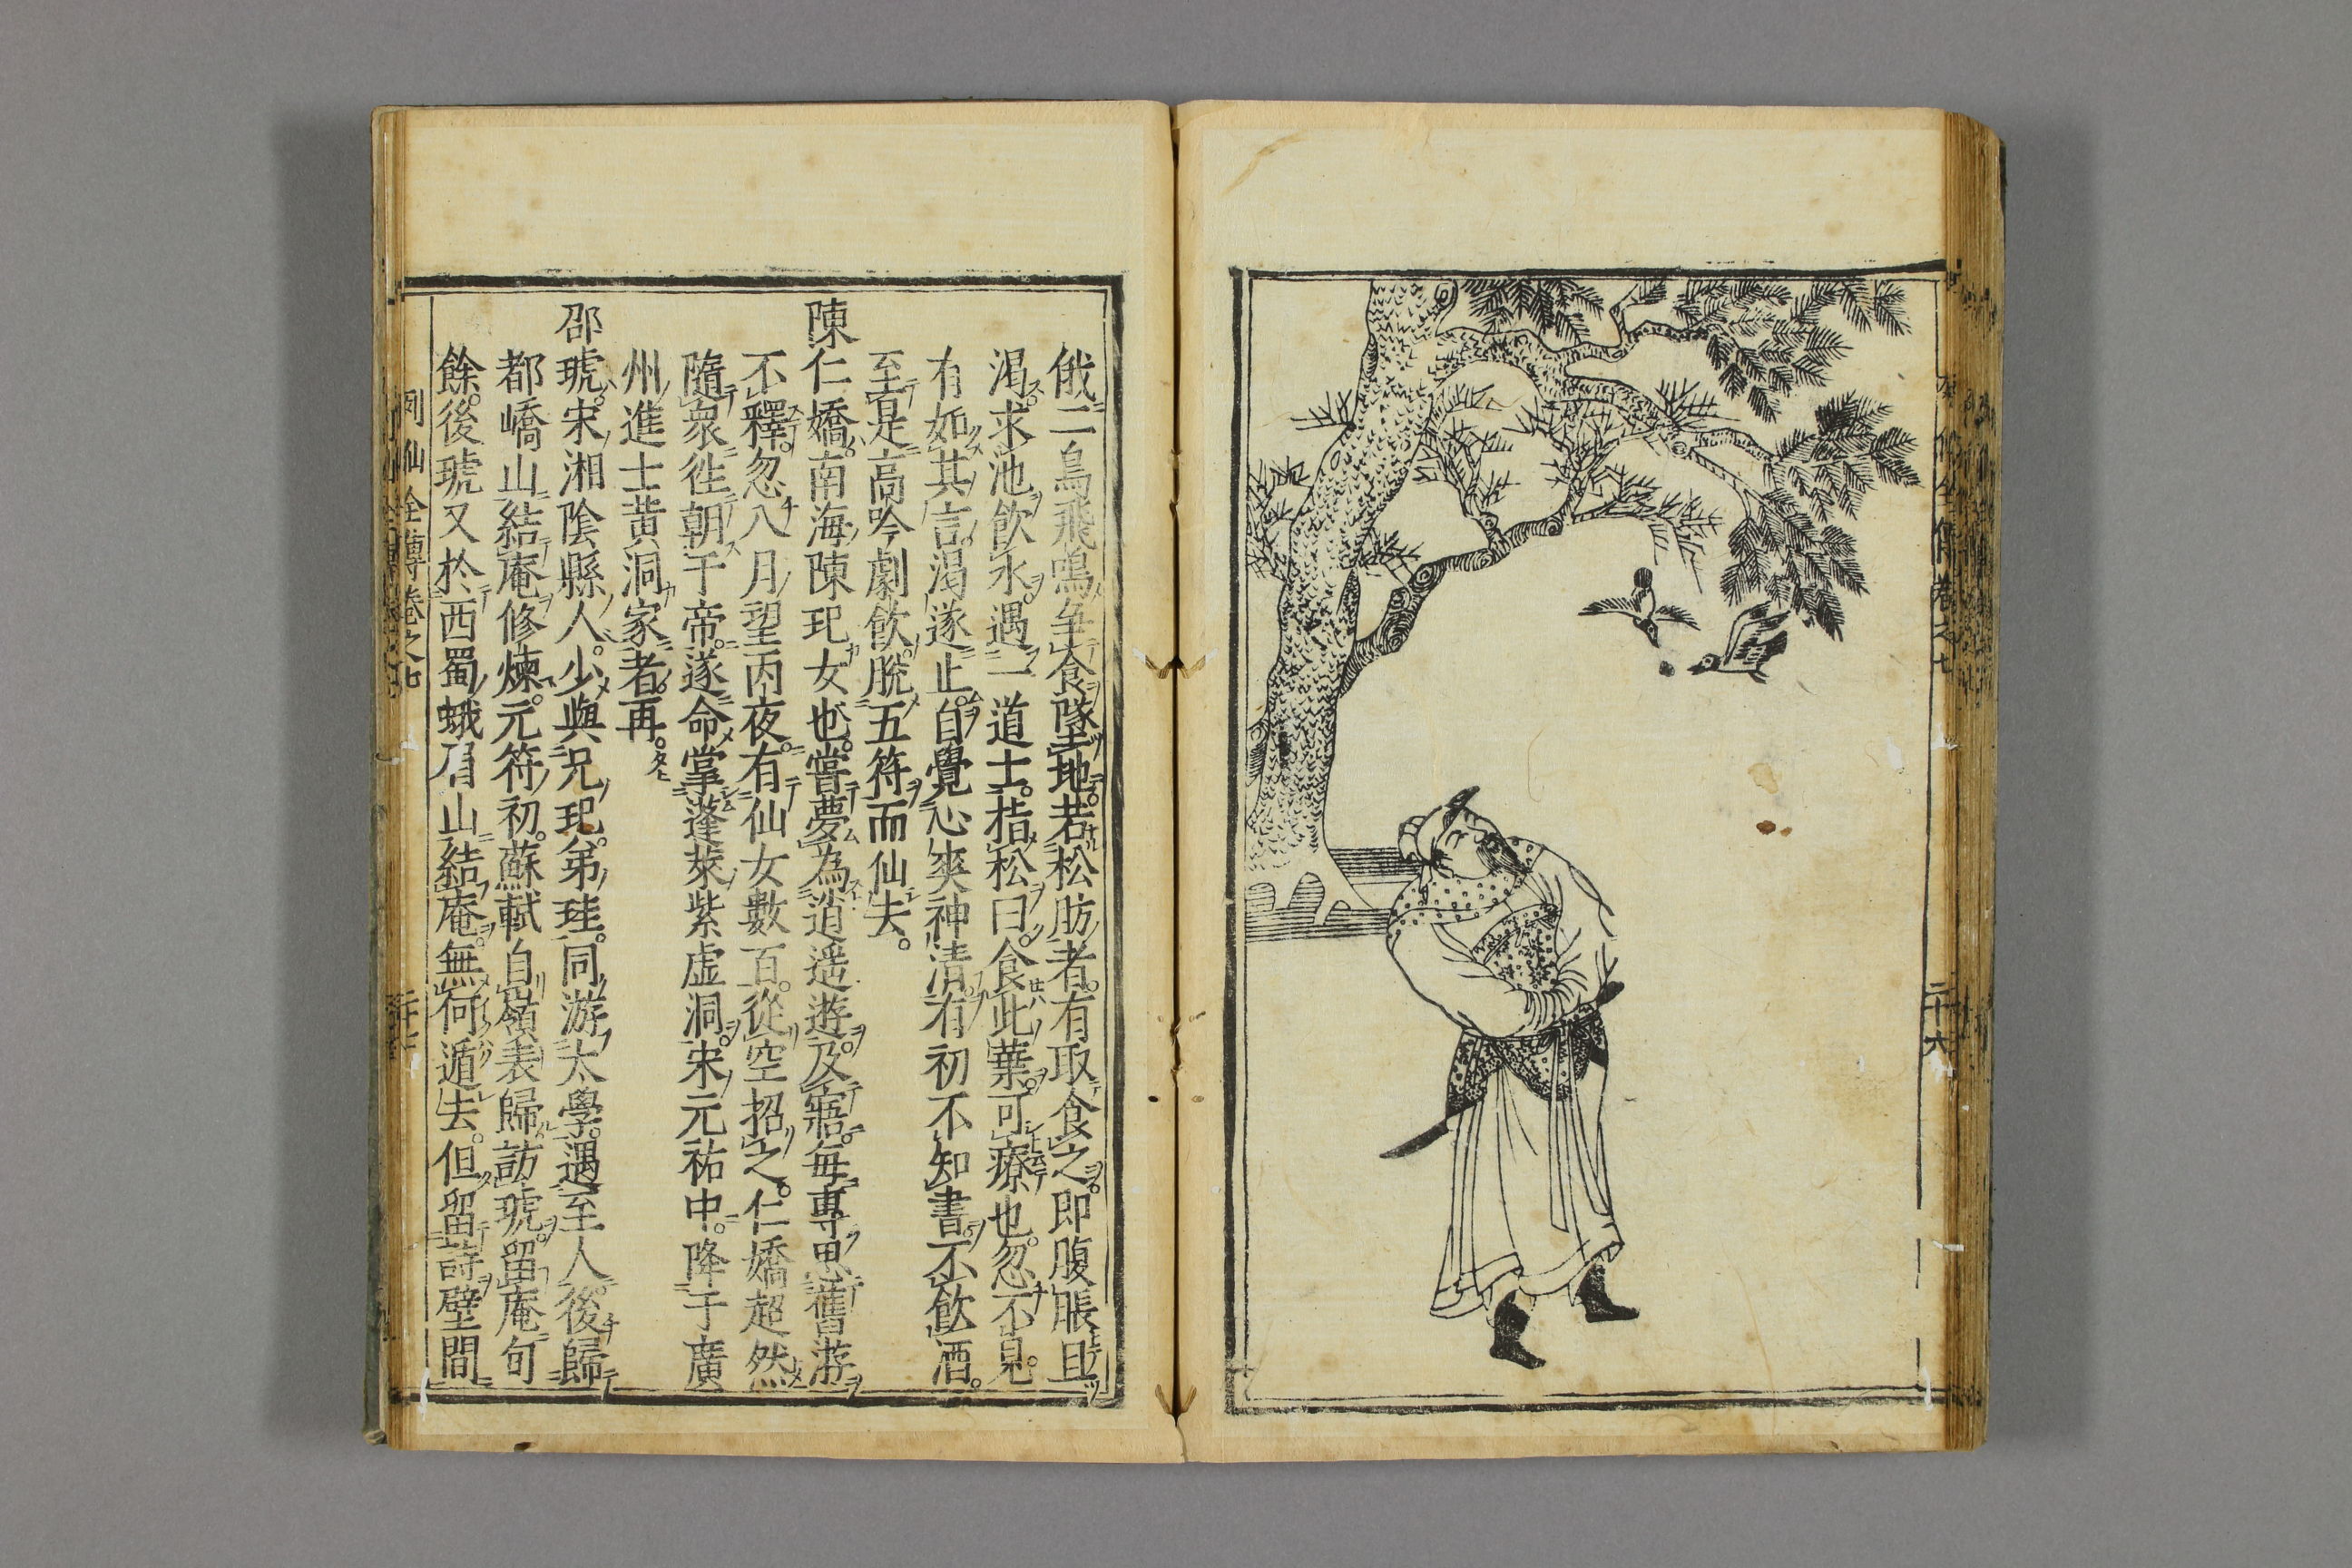 二十六
俄二鳥飛鳴争食墜地若松肪者有取食之即腹脹且
渇求池飲水遇一道士指松曰食此葉可療也忽不見
有如其言渇遂止自覺心爽神清有初不知書不飲酒
至是高吟劇飲脫五符而仙去
陳仁嬌南海陳玘女也嘗夢為逍遥遊及寤每專思舊游
不釋忽八月望丙夜有仙女數百從空招之仁嬌超然
隨衆徃朝于帝遂命掌蓬萊紫虛洞宋元祐中降于廣
州進士黄洞家者再
邵琥宋湘陰縣人少與兄玘弟珪同游太學遇至人後歸
都嶠山結庵修煉元符初蘇軾自嶺表歸訪琥留庵旬
餘後琥又於西蜀蛾眉山結庵無何遁去但留詩壁間
列仙全傳卷之七